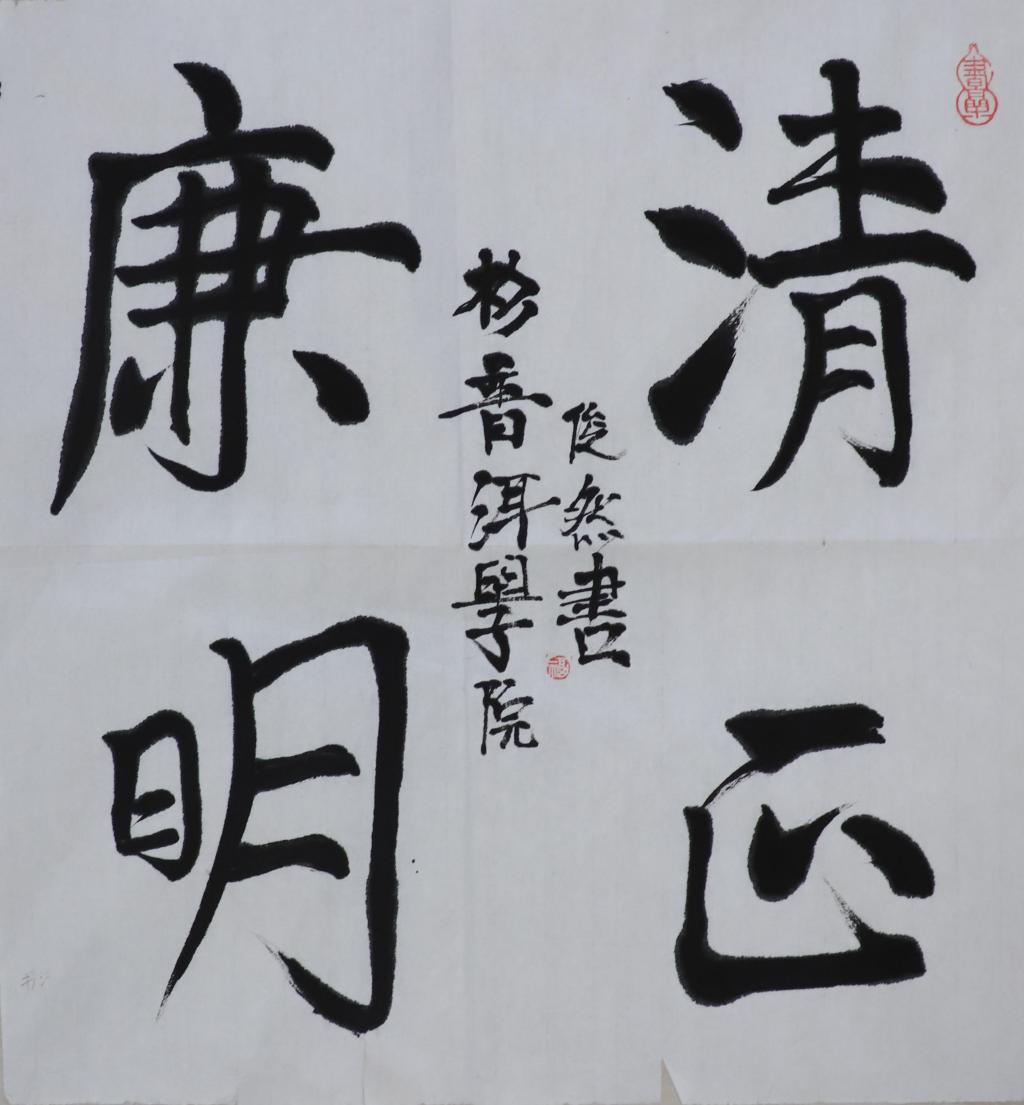 清正
廉明
俊然書
於普洱學院